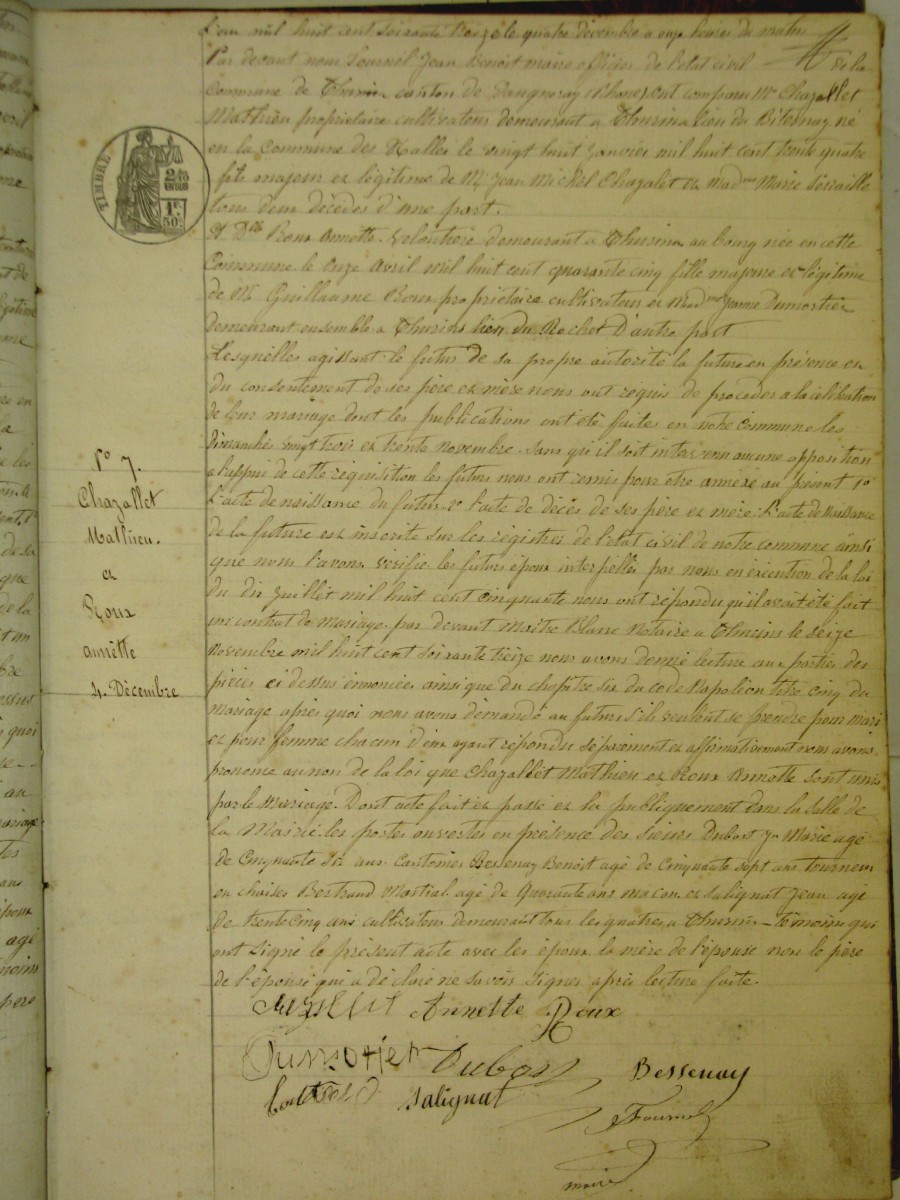 L'an mil huit cent soixante treize le quatre décembre a onze heures du matin
Par devant nous Fournel Jean Benoit maire officier de l'etat civil de la
Commune de Thurins canton de Vaugneray Rhone sont comparu Mr Chazallet
Mathieu proprietaire cultivateur demeurant a Thurins lieu du né
en la Commune des Halles le vingt huit Janvier mil huit cent trente quatre
fils majeur et légitime de Mr Jean Michel Chazalet et Madme Marie
tous deux décédés d'une part.
Et Dlle Roux Annette demeurant a Thurins au bourg née en cette
Commune le Onze Avril mil huit cent quarante cinq fille majeure et légitime
de Mr Guillaume Roux propriétaire cultivateur et Madme Jeanne Dumortier
demeurant ensemble a Thurins lieu du Rochet D'autre part
Lesquelles agissant le futur de sa propre autorité la future en présence en
du consentement de ses père et mère nous ont réquis de procéder a la célébration
de leur mariage dont les publications ont été faites en notre commune les
Dimanches vingt trois et trente novembre. Sans qu'il soit intervenu aucune opposition
a l'appui de cette réquisition les futurs nous ont remis pour etre annéxé au présent 1o
L'acte de naissance du futur 2o l'acte de décès de ses père et mère. L'acte de Naissance
de la future est inscrite sur les régistres de l'etat civil de notre commune ainsi
que nous l'avons vérifié les futurs époux interpellés par nous en éxécution de la loi
du dix Juillet mil huit cent cinquante nous ont répondu qu'il avait été fait
un contrat de Mariage par devant Maitre Blanc Notaire a Thurins le seize
Novembre mil huit cent soixante treize nous avons donné lecture aux parties des
pièces ci dessus énoncées ainsi que du chapitre six du code Napoléon titre cinq du
Mariage après quoi nous avons démandé au futurs s'ils veulent se prendre pour mari
et pour femme chacun d'eux ayant répondu séparement et affirmativement nous avons
prononcé au nom de la loi que Chazallet Mathieu et Roux Annette sont unis
par le Mariage. Dont acte fait et passé et lu publiquement dans la salle de
la Mairie les portes ouvertes en présence des sieurs Dubost Jn Marie agé
de Cinquante six ans Cantonier Bessenay Benoit agé de Cinquante sept ans tourneur
en chaises Bertrand Martial agé de Quarante ans macon et Salignat Jean agé
de trente cinq ans cultivateur demeurant tous les quatres a Thurins témoins qui
ont signé le présent acte avec les époux la mère de l'épouse non le père
de l'épouse qui a déclaré ne savoir signer après lecture faite.
Annette Roux
Dumortier Dubost Bessenay
Salignat
Fournel
maire
No 7.
Chazallet
Mathieu.
et
Roux
annette
4. Décembre
TIMBRE
2/10
EN SUS
1F.
50c.